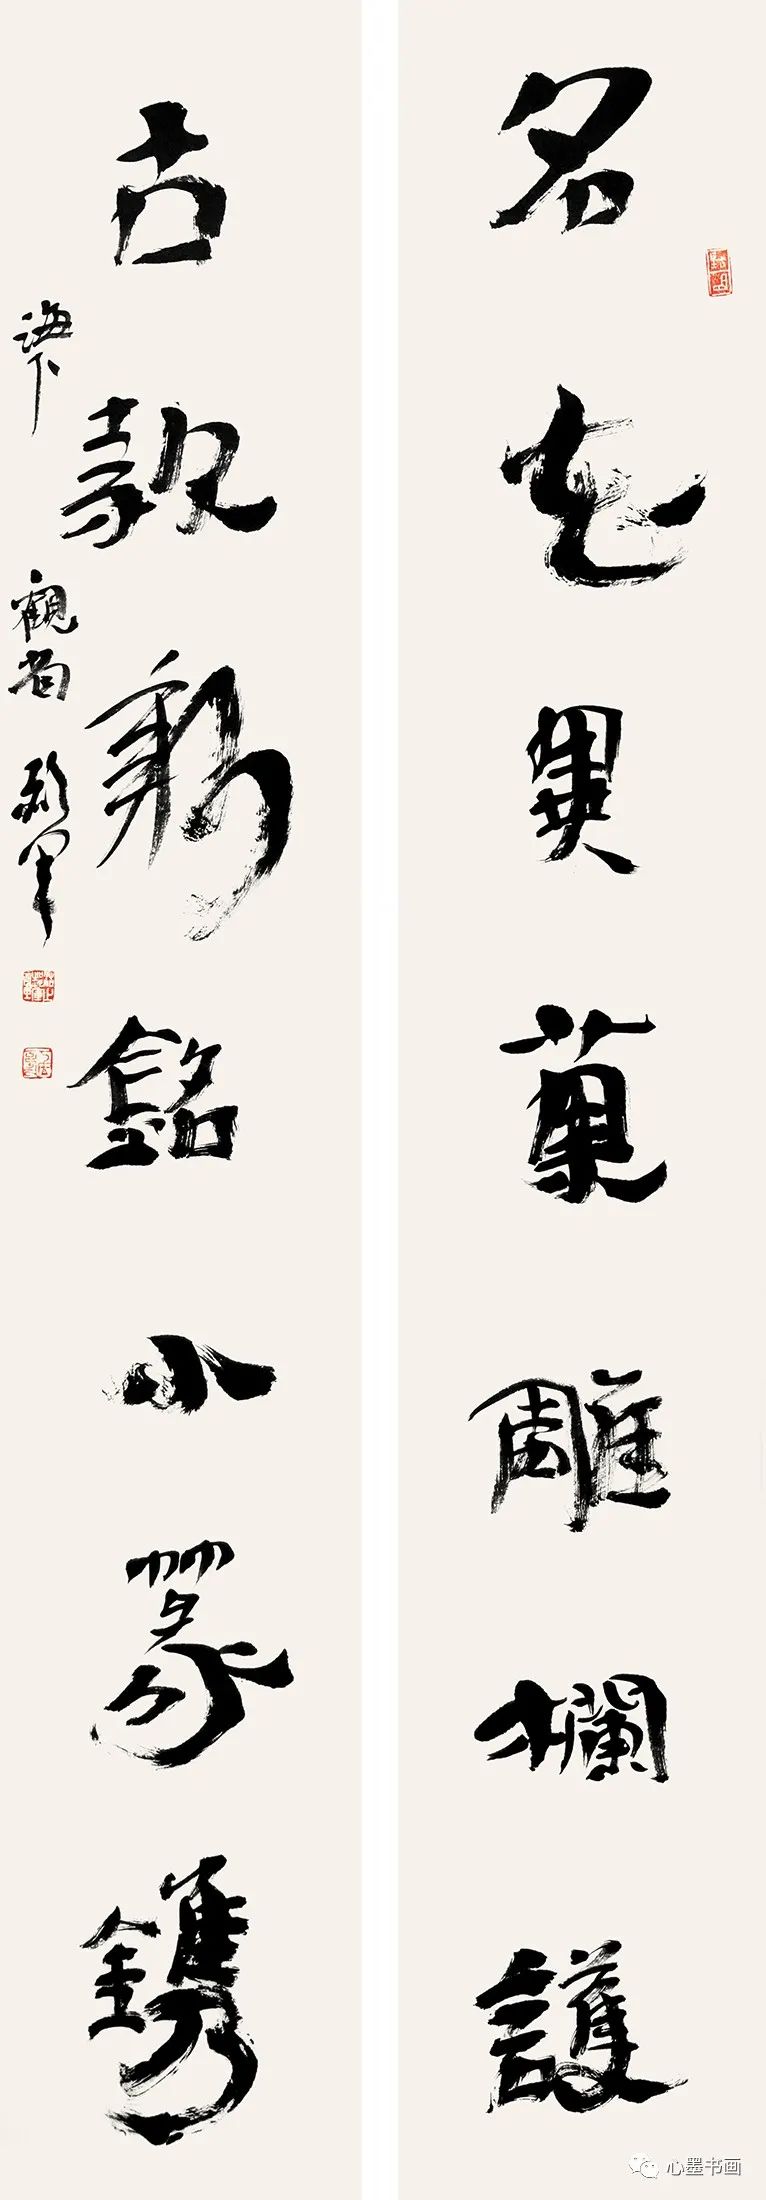 名花異菓雕欄護
古款新銘小篆鐫
海下
觀者
心墨书画